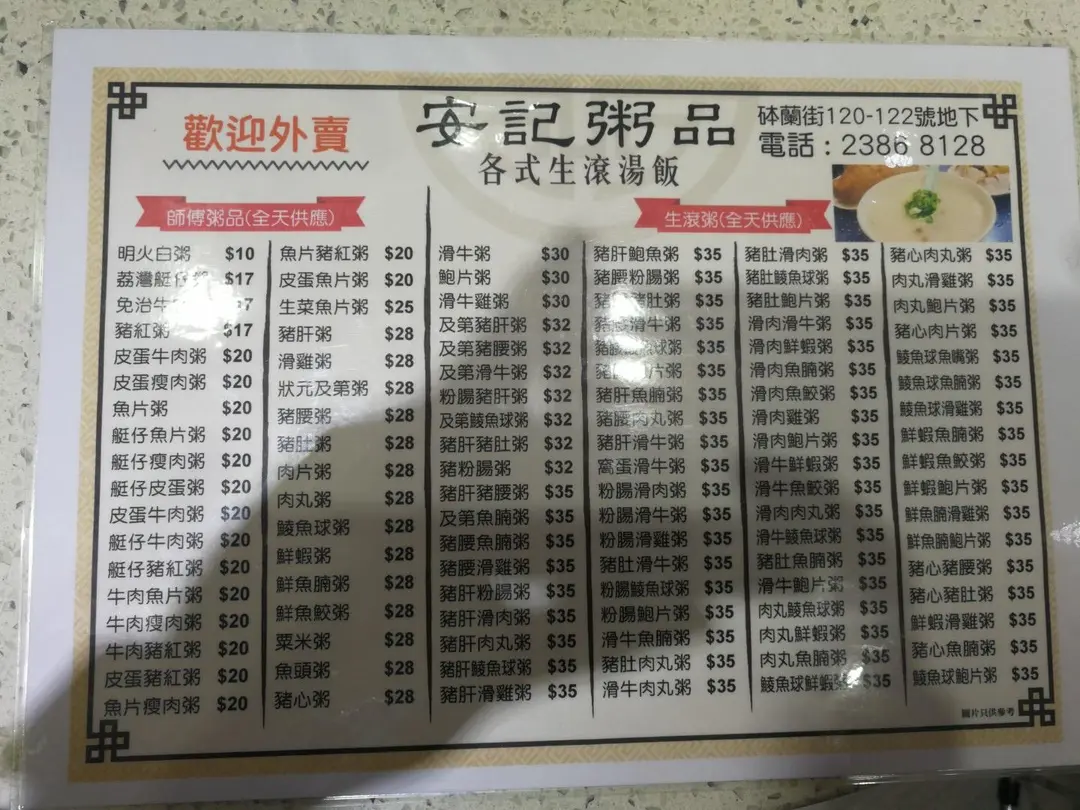 歡迎外賣
安記粥品
各式生滾湯飯
砵蘭街120-122號地下
電話:2386 8128
師傅粥品(全天供應)
明火白粥 $10
荔灣艇仔粥 $17
免治牛 7
豬紅粥 $17
皮蛋牛肉粥 $20
皮蛋瘦肉粥 $20
魚片粥 $20
艇仔魚片粥 $20
艇仔瘦肉粥 $20
艇仔皮蛋粥 $20
皮蛋牛肉粥 $20
艇仔牛肉粥 $20
艇仔豬紅粥 $20
牛肉魚片粥 $20
牛肉瘦肉粥 $20
牛肉豬紅粥 $20
皮蛋豬紅粥 $20
魚片瘦肉粥 $20
魚片豬紅粥 $20
皮蛋魚片粥 $20
生菜魚片粥 $25
豬肝粥 $28
滑雞粥 $28
狀元及第粥 $28
豬腰粥 $28
豬肚粥 $28
肉片粥 $28
肉丸粥 $28
鯪魚球粥 $28
鮮蝦粥 $28
鮮魚腩粥 $28
鮮魚鮫粥 $28
粟米粥 $28
魚頭粥 $28
豬心粥 $28
生滾粥(全天供應)
滑牛粥 $30
鮑片粥 $30
滑牛雞粥 $30
及第豬肝粥 $32
及第豬腰粥 $32
及第滑牛粥 $32
粉腸豬肝粥 $32
及第鯪魚球粥 $32
豬肝豬肚粥 $32
豬粉腸粥 $32
豬肝豬腰粥 $35
及第魚腩粥 $35
豬腰魚腩粥 $35
豬腰滑雞粥 $35
豬肝粉腸粥 $35
豬肝滑肉粥 $35
豬肝肉丸粥 $35
豬肝鯪魚球粥 $35
豬肝滑雞粥 $35
豬肝鮑魚粥 $35
豬腰粉腸粥 $35
豬腰豬肚粥 $35
豬腰滑牛粥 $35
豬腰 球粥 $35
豬 片粥 $35
豬肝魚腩粥 $35
豬腰肉丸粥 $35
豬肝滑牛粥 $35
窩蛋滑牛粥 $35
粉腸滑肉粥 $35
粉腸滑牛粥 $35
粉腸滑雞粥 $35
豬肚滑牛粥 $35
粉腸鯪魚球粥 $35
粉腸鮑片粥 $35
滑牛魚腩粥 $35
豬肚肉丸粥 $35
滑牛肉丸粥 $35
豬肚滑肉粥 $35
豬肚鯪魚球粥 $35
豬肚鮑片粥 $35
滑肉滑牛粥 $35
滑肉鮮蝦粥 $35
滑肉魚腩粥 $35
滑肉魚鮫粥 $35
滑肉雞粥 $35
滑肉鮑片粥 $35
滑牛鮮蝦粥 $35
滑牛魚鮫粥 $35
滑肉肉丸粥 $35
滑牛鯪魚球粥 $35
豬肚魚腩粥 $35
滑牛鮑片粥 $35
肉丸鯪魚球粥 $35
肉丸鮮蝦粥 $35
肉丸魚腩粥 $35
鯪魚球鮮蝦粥 $35
豬心肉丸粥 $35
肉丸滑雞粥 $35
肉丸鮑片粥 $35
豬心肉片粥 $35
鯪魚球魚嘴粥 $35
鯪魚球魚腩粥 $35
鯪魚球滑雞粥 $35
鮮蝦魚腩粥 $35
鮮蝦魚鮫粥 $35
鮮蝦鮑片粥 $35
鮮魚腩滑雞粥 $35
鮮魚腩鮑片粥 $35
豬心豬腰粥 $35
豬心豬肚粥 $35
鮮蝦滑雞粥 $35
豬心魚腩粥 $35
鯪魚球鮑片粥 $35
圖片只供參考